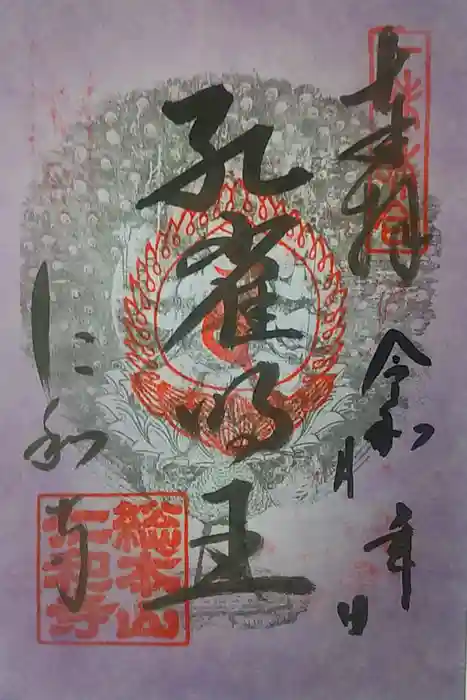 奉拝
令和 年 月 日
孔雀明王
仁和寺
総本山
仁和寺